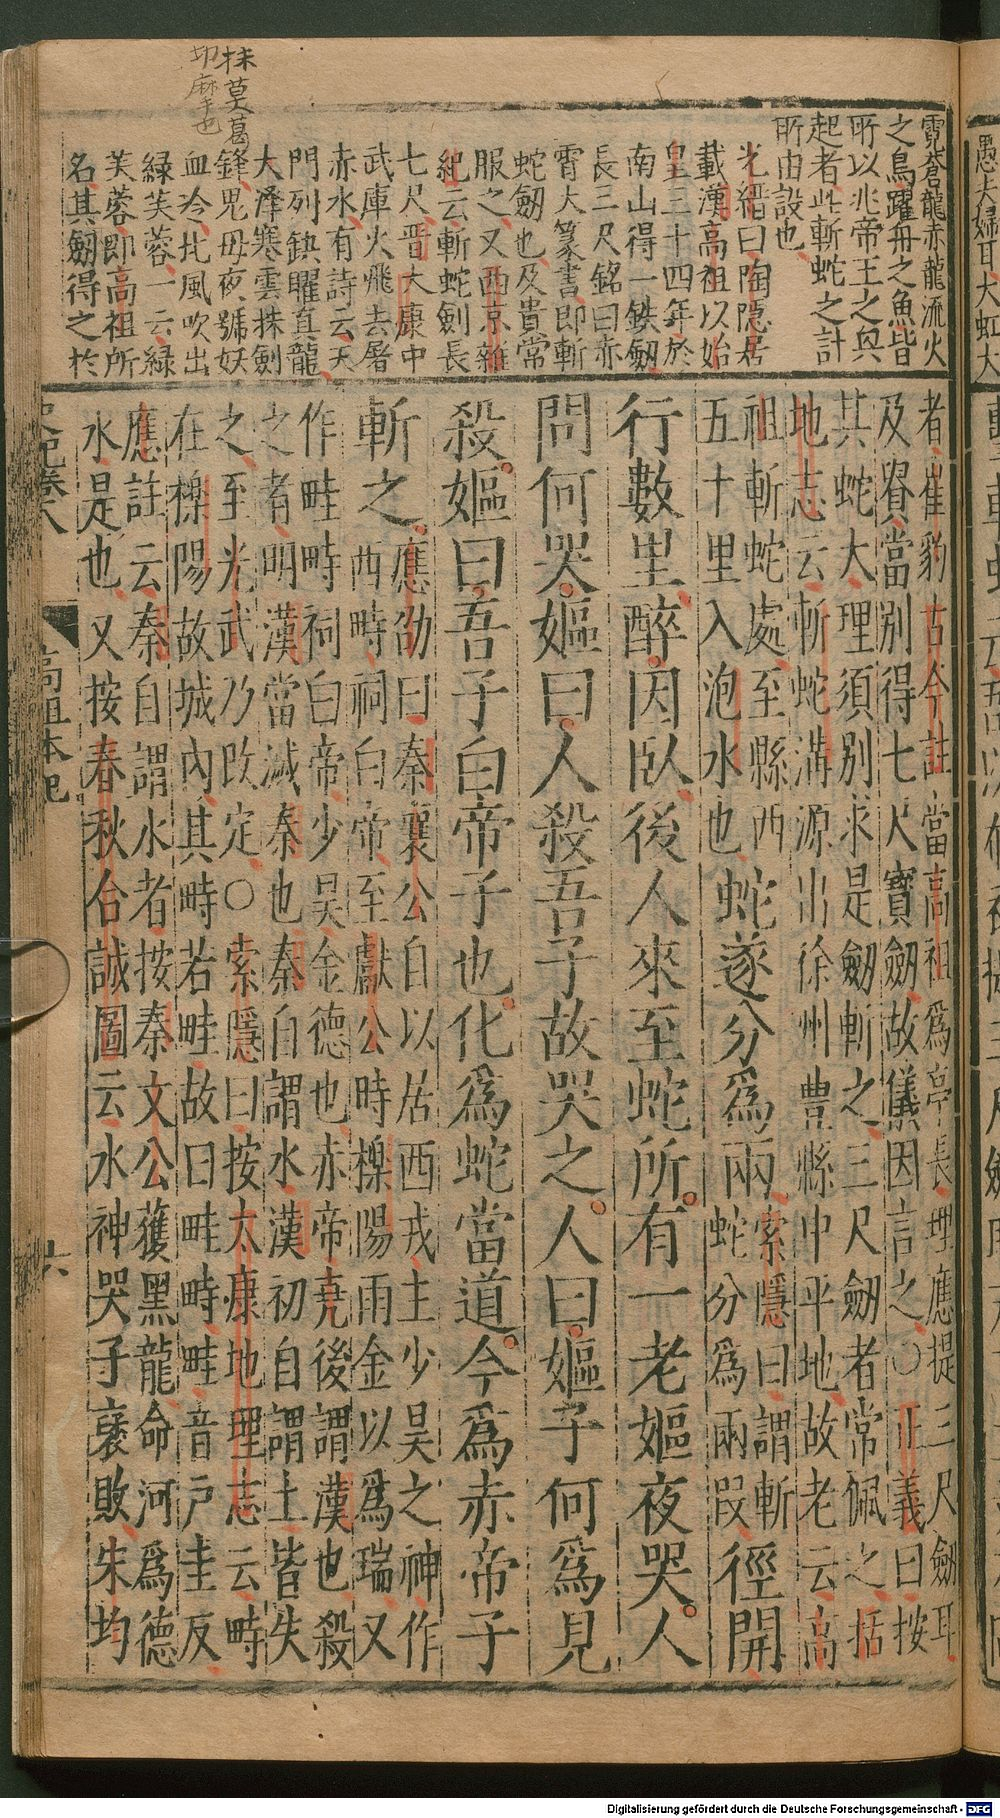 抹莫葛
切摩也
霓蒼龍赤龍流火
之烏躍舟之魚皆
所以兆帝王之與
起者此斬蛇之計
所由設也
光縉曰陶隱居
載漢高祖以始
皇三十四年於
南山得一鉄劔
長三尺銘曰赤
霄大篆書即斬
蛇劔也及貴常
服之又西京雜
紀云斬蛇劍長
七尺晋大康中
武庫火飛去屠
赤水有詩云天
門列缺矅直龍
大澤寒雲抹劍
鋒鬼母夜號妖
血冷北風吹出
緑芙蓉一云緑
芙蓉即高祖所
名其劔得之於
者崔豹古今註當高祖爲亭長理應提三尺劔耳
及貴當別得七尺寶劔故儀因言之○正義曰按
其蛇大理須別求是劔斬之三尺劔者常佩之括
地志云斬蛇溝源出徐州豊縣中平地故老云高
祖斬蛇處至縣西
五十里入泡水也
蛇遂分爲兩
索隱曰謂斬
蛇分爲兩段
徑開
行數里醉因臥後人來至蛇所有一老嫗夜哭人
問何哭嫗曰人殺吾子故哭之人曰嫗子何爲見
殺嫗曰吾子白帝子也化爲蛇當道今爲赤帝子
斬之
應劭曰秦襄公自以居西戎主少昊之神作
西畤祠白帝至獻公時櫟陽雨金以爲瑞又
作畦畤祠白帝少昊金德也赤帝堯後謂漢也殺
之者明漢當滅秦也秦自謂水漢初自謂土皆失
之至光武乃改定○索隱曰按太康地理志云畤
在櫟陽故城內其畤若畦故曰畦畤畦音戶圭反
應註云秦自謂水者按秦文公獲黑龍命河爲德
水是也又按春秋合誠圖云水神哭子襃敗朱均
史記卷八
高祖本紀
六
愚夫婦耳大虹大
Digitalisierung gefördert durch die Deutsche Forschungsgemeinschaft - DFG